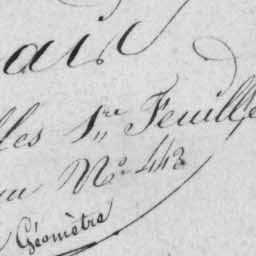 aix
lles 1re Feuille
au No 443
Géomètre